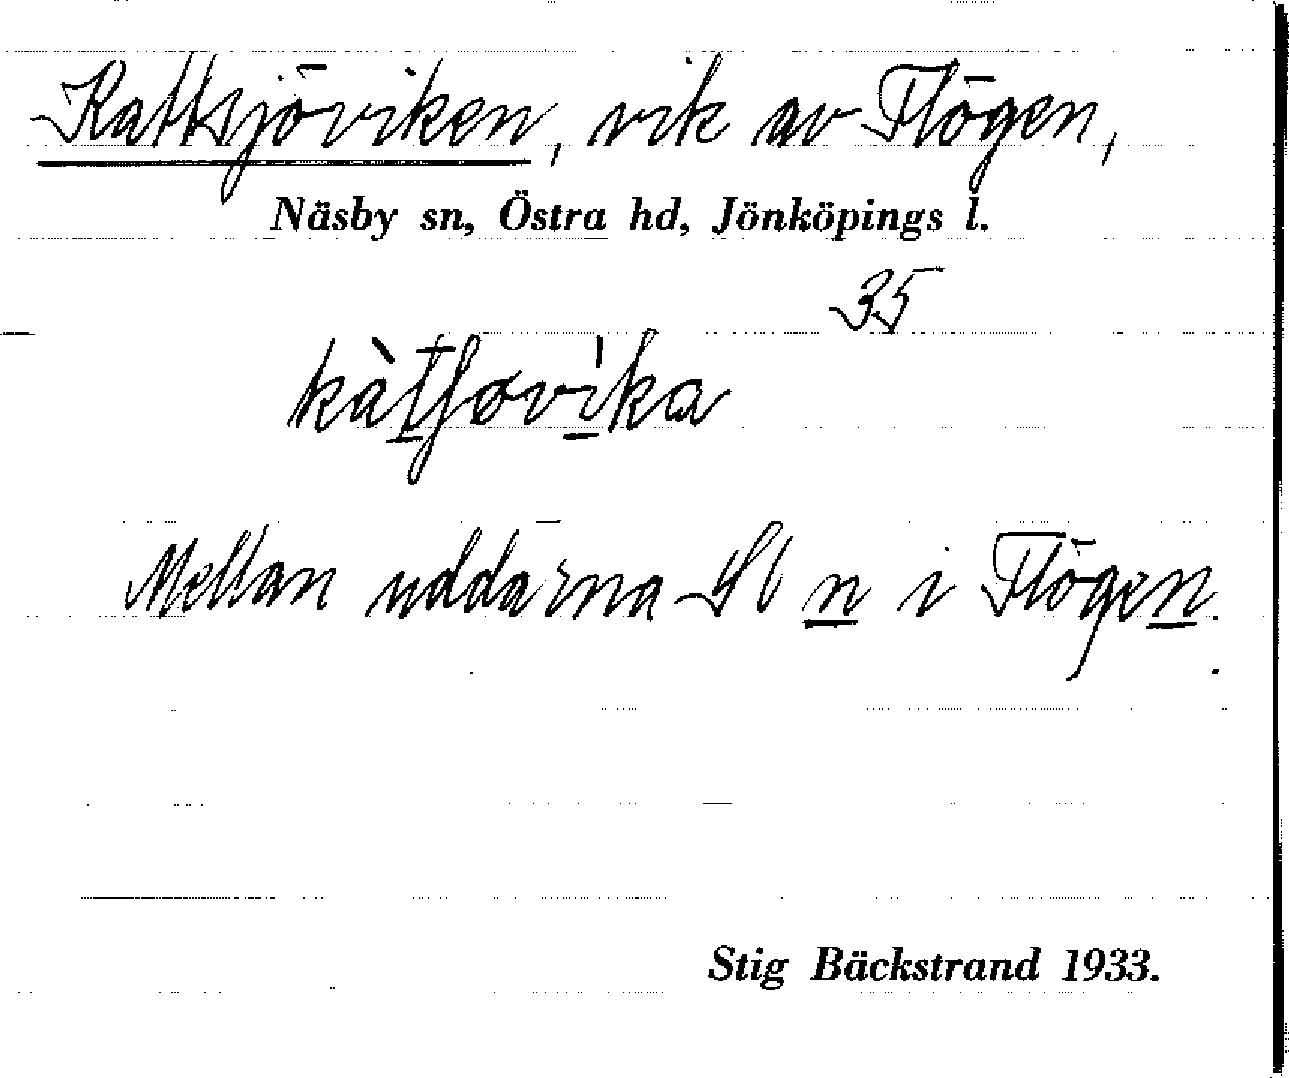 Kattsjöviken, vik av Flögen,
Näsby sn, Östra hd, Jönköpings l.
35
Mellan uddarna i Flögen.
Stig Bäckstrand 1933.